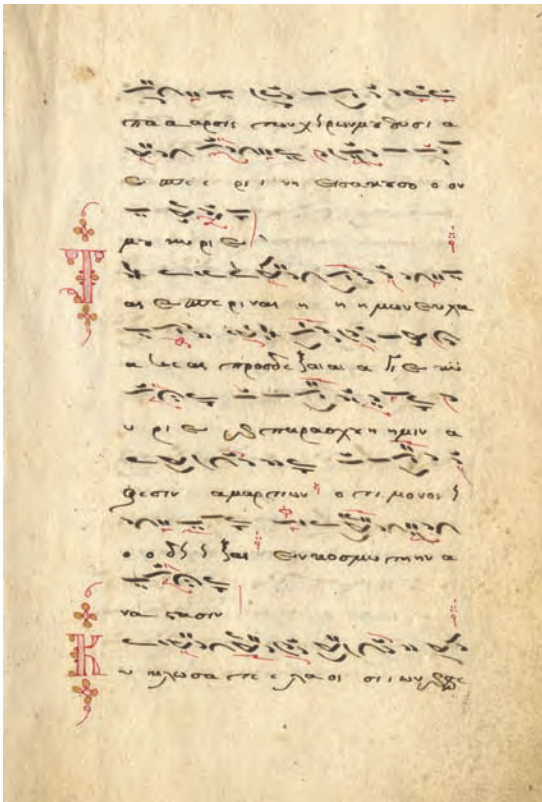 πα α αρσις των χειρων μου θυσι α
ε σπε ε ρι ι νη εισακουσο ο ον
μου κυ ρι ε
Τ ας ε σπε ρι νας η η η μων ευ χα
α ας προσδε ξαι αι α γι ε κυ
υ ρι ε και παρασχου η ημιν α
φεσιν αμαρτιων ο τι μονος ει
ο ο δει ει ξας εν κοσμω την α
να στασιν
Κ υ κλωσα τε ε λα οι σι ι ων